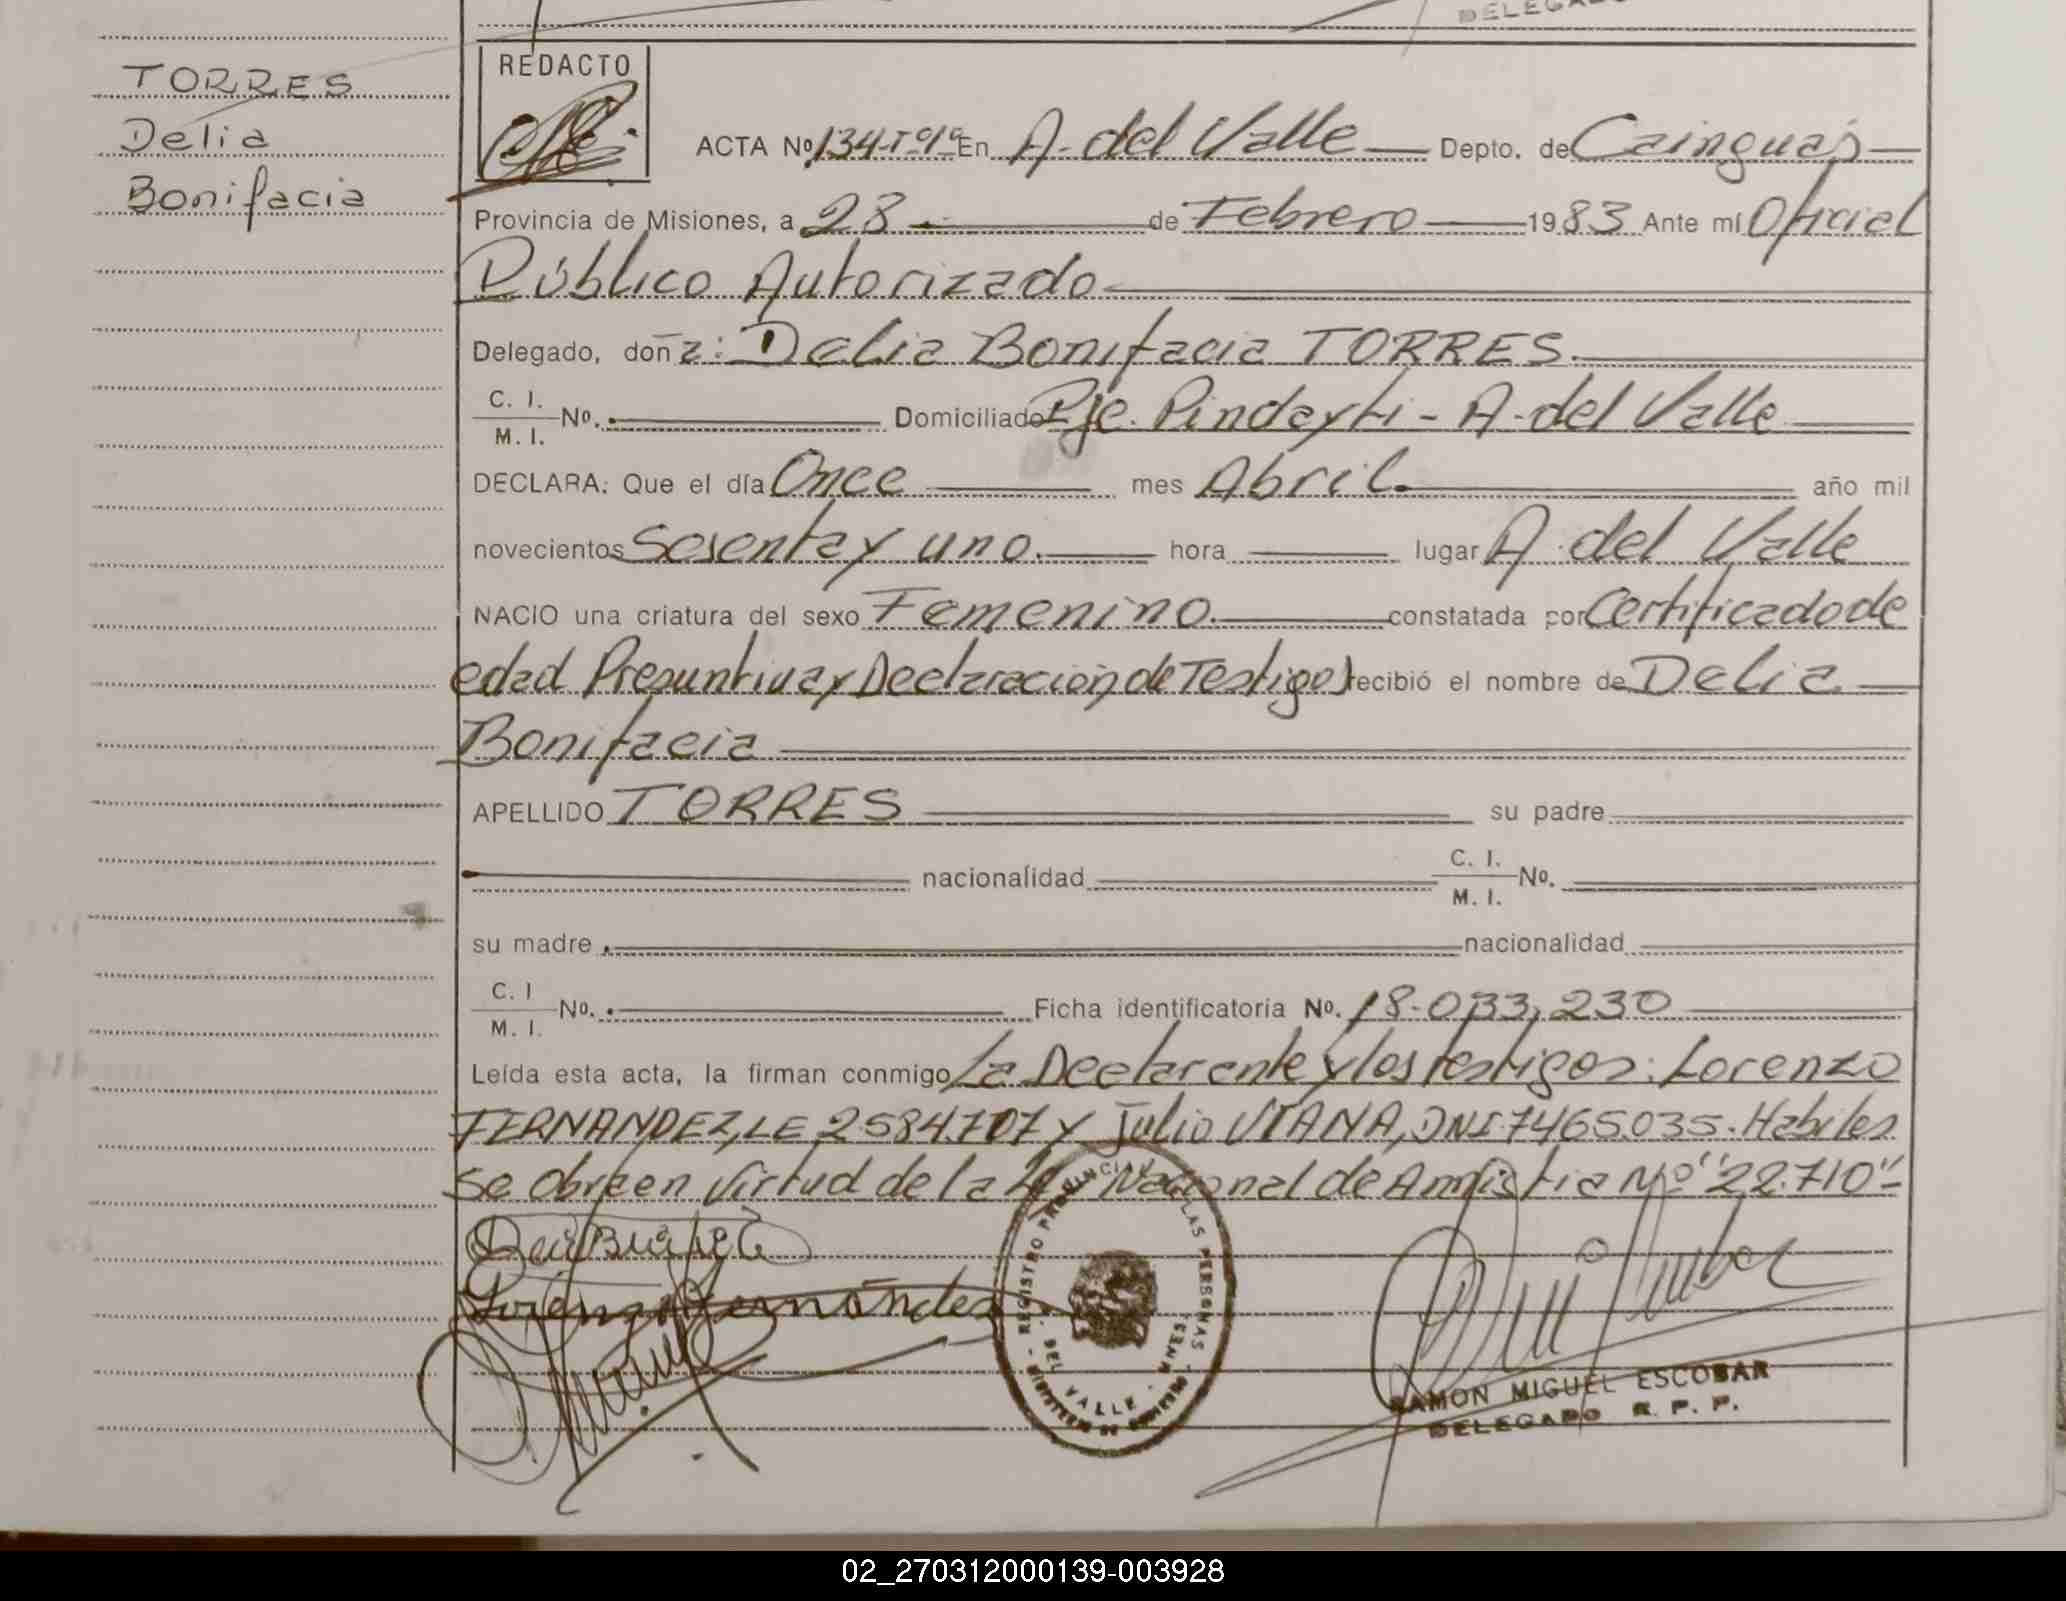 DELEGADO
TORRES
Delia
Bonifacia
REDACTO
ACTA Nº 134-Tº1º En A. del Valle Depto. de Cainguás
Provincia de Misiones, a 28 de Febrero 1983 Ante mí Oficial
Público Autorizado
Delegado, doña: Delia Bonifacia TORRES.
C. I.
M. I. Nº. Domiciliado Pje. Pindayti - A. del Valle
DECLARA: Que el día Once mes Abril. año mil
novecientos Sesenta y uno. hora lugar A. del Valle
NACIO una criatura del sexo Femenino. constatada por Certificado de
edad Presuntiva y Declaración de Testigos recibió el nombre de Delia
Bonifacia
APELLIDO TORRES su padre
nacionalidad C. I. Nº.
M. I.
su madre nacionalidad
C. I
M. I. Nº. Ficha identificatoria Nº. 18.033,230
Leída esta acta, la firman conmigo La Declarante y los testigos: Lorenzo
FERNANDEZ, LE 2584.707 y Julio VIANA, DNI 7465.035. Habiles
se Obra en Virtud de la Ley Nacional de Amnistia Nº "22.710"
Lorenzo Fernández
REGISTRO PROVINCIAL DE LAS PERSONAS
DEL VALLE - MNES.
MINISTERIO DE GOBIERNO
RAMON MIGUEL ESCOBAR
DELEGADO R. P. P.
02_270312000139-003928